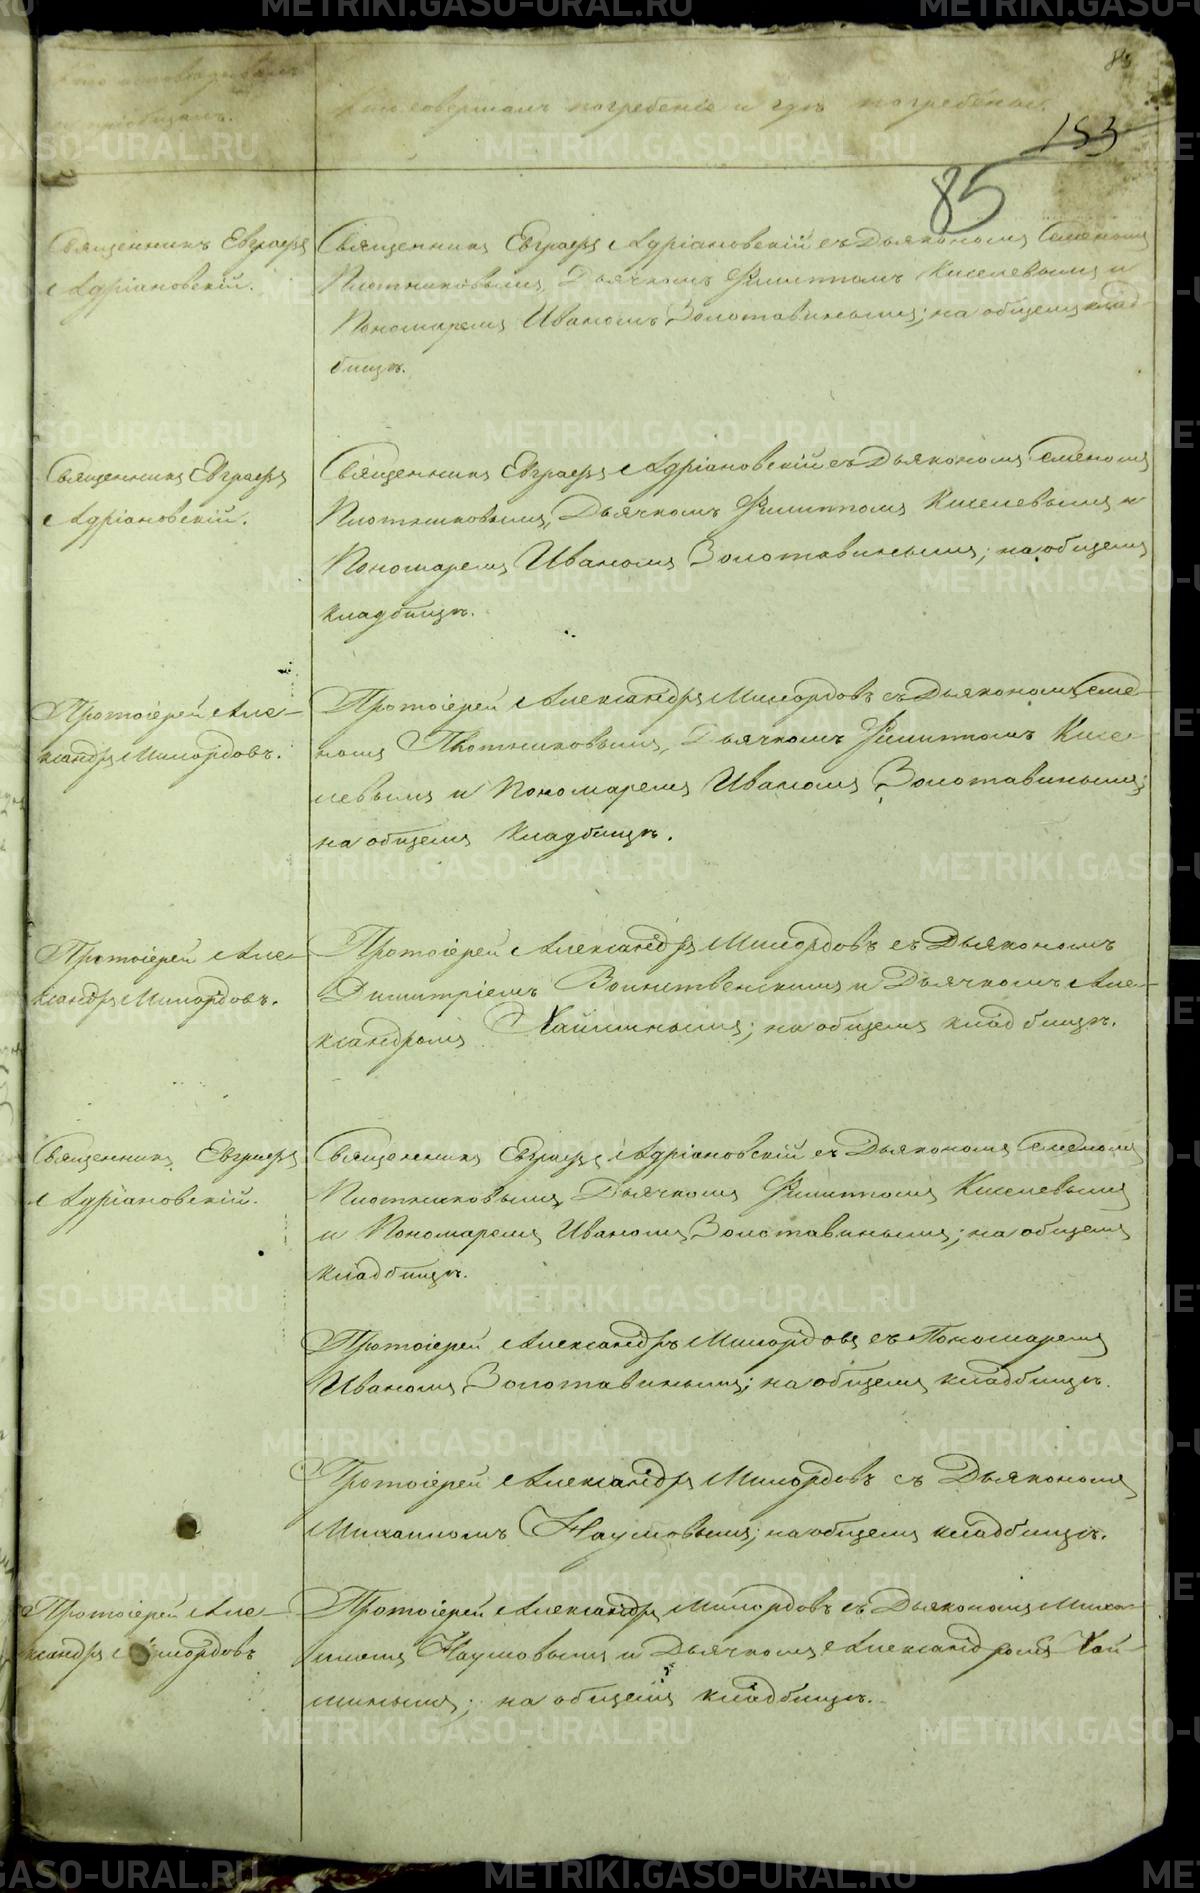 85
153
85
Кто исповѣдывалъ
и пріобщалъ.
Кто совершалъ погребеніе и гдѣ погребены.
Священникъ Евграфъ
Адріановскій.
Священникъ Евграфъ Адріановскій съ Дьякономъ Семеномъ
Плотниковымъ, Дьячкомъ Филиппомъ Киселевымъ и
Пономаремъ Иваномъ Золотавинымъ; на общемъ клад-
бищѣ.
Священникъ Евграфъ
Адріановскій.
Священникъ Евграфъ Адріановскій съ Дьякономъ Семеномъ
Плотниковымъ, Дьячкомъ Филиппомъ Киселевымъ и
Пономаремъ Иваномъ Золотавинымъ; на общемъ
кладбищѣ.
Протоіерей Але-
ксандръ Милордовъ.
Протоіерей Александръ Милордовъ съ Дьякономъ Семе-
номъ Плотниковымъ, Дьячкомъ Филиппомъ Кисе-
левымъ и Пономаремъ Иваномъ Золотавинымъ;
на общемъ кладбищѣ.
Протоіерей Але-
ксандръ Милордовъ.
Протоіерей Александръ Милордовъ съ Дьякономъ
Димитріемъ Воинственскимъ и Дьячкомъ Але-
ксандромъ Хайминымъ; на общемъ кладбищѣ.
Священникъ Евграфъ
Адріановскій.
Священникъ Евграфъ Адріановскій съ Дьякономъ Семеномъ
Плотниковымъ, Дьячкомъ Филиппомъ Киселевымъ
и Пономаремъ Иваномъ Золотавинымъ; на общемъ
кладбищѣ.
Протоіерей Александръ Милордовъ съ Пономаремъ
Иваномъ Золотавинымъ; на общемъ кладбищѣ.
Протоіерей Александръ Милордовъ съ Дьякономъ
Михаиломъ Наумовымъ; на общемъ кладбищѣ.
Протоіерей Але-
ксандръ Милордовъ
Протоіерей Александръ Милордовъ съ Дьякономъ Миха-
иломъ Наумовымъ и Дьячкомъ Александромъ Хай-
минымъ; на общемъ кладбищѣ.
METRIKI.GASO-URAL.RU